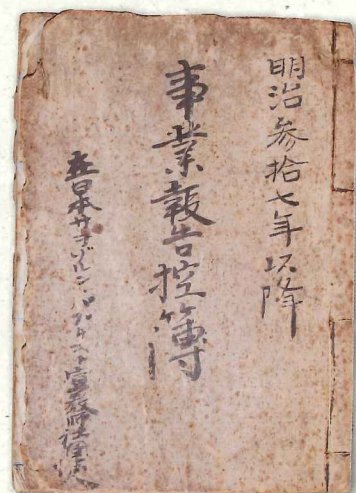 明治参拾七年以降
事業報告控簿
在日本サウゾルン、バプテスト宣教師社団